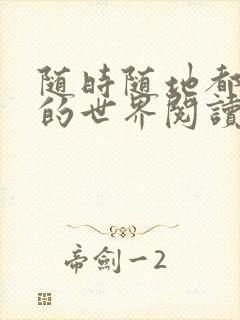 随時随地都
的世界閱讀
帝劍一2